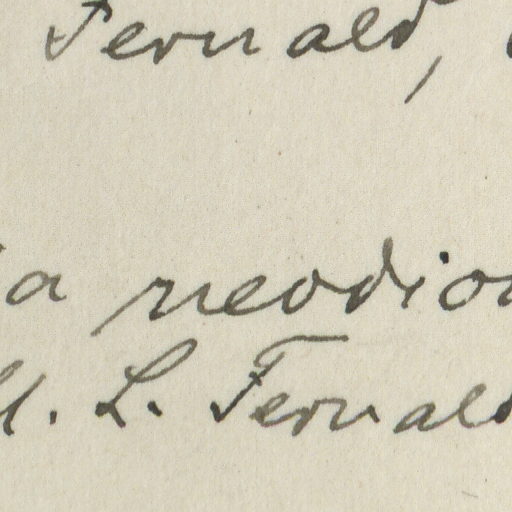 Fernald,
a neodioi
M. L. Fernald